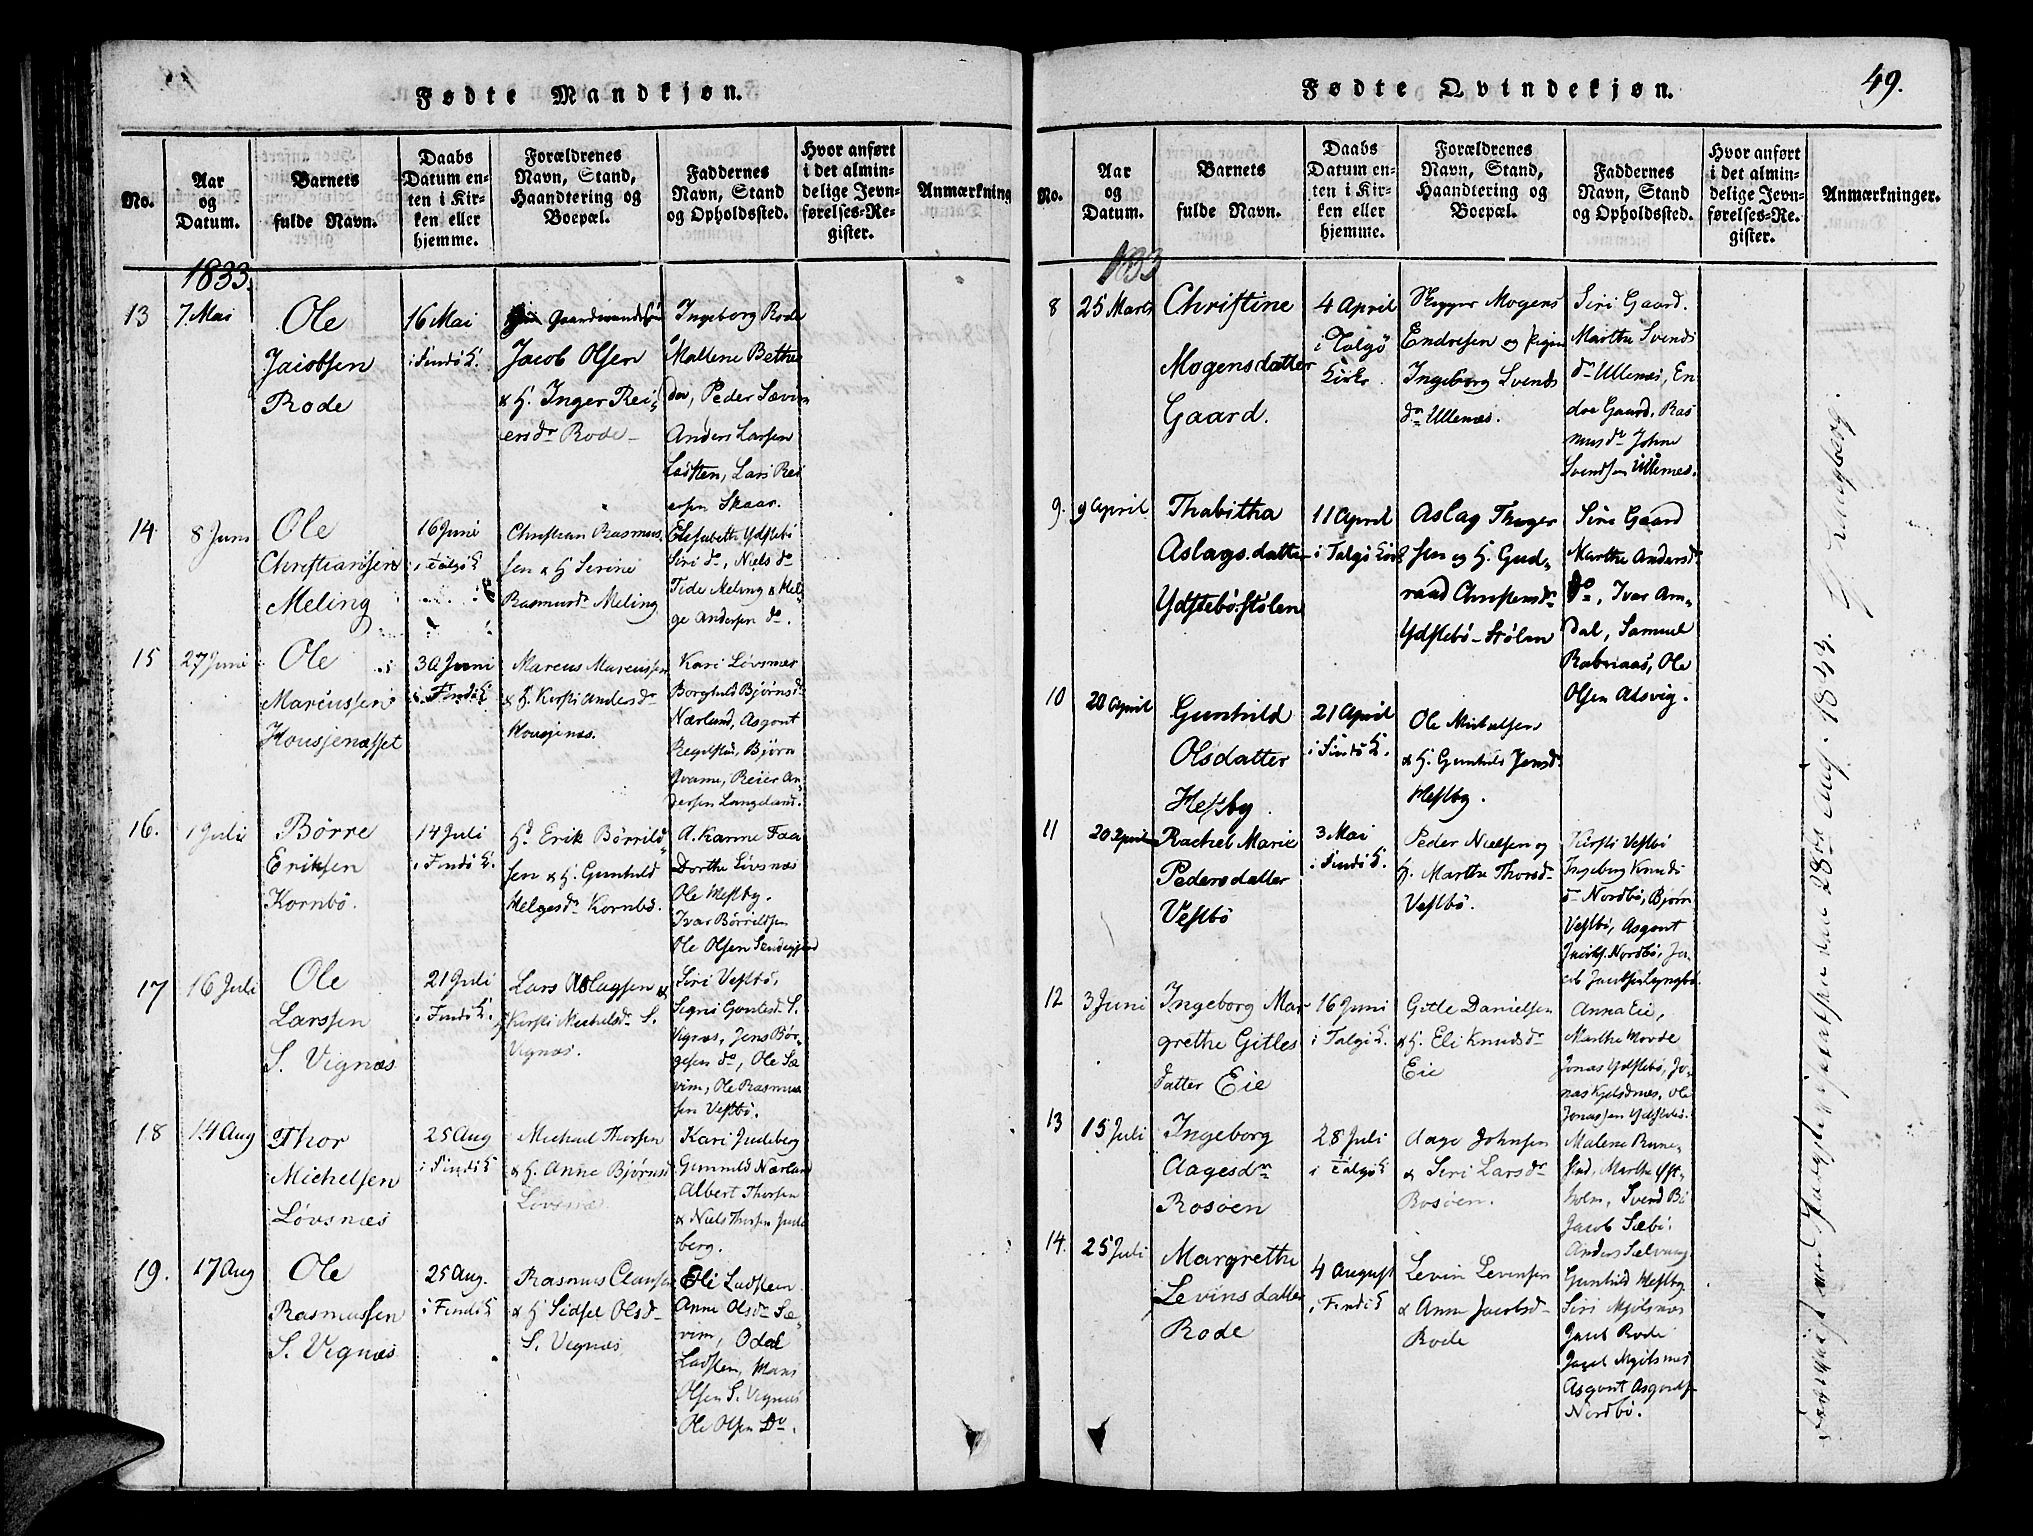 Fødte Mandkjøn.
No.
Aar
og
Datum.
Barnets
fulde Navn.
Daabs
Datum en-
ten i Kir-
ken eller
hjemme.
Forældrenes
Navn, Stand,
Haandtering og
Boepæl.
Faddernes
Navn, Stand
og Opholdssted.
Hvor anført
i det almin-
delige Jevn-
førelses-Re-
gister.
Anmærkning
1833.
13
7 Mai
Ole
Jacobsen
Rode
16 Mai
i Findö K.
Gaardmand
Jacob Olsen
& H. Inger Rei-
ersdr Rode
Ingeborg Rode
Mallene Bethe
dor, Peder Sævim
Anders Larsen
Ladsten, Lars Rei
ersen Skaar.
14
8 Juni
Ole
Christiansen
Meling
16 Juni
i Talgö K
Christian Rasmus
sen & H Serine
Rasmusdr Meling
Elisabeth Ydstebö
Siri do, Niels do
Tide Meling & Hel
ge Andersen do.
15
27 Juni
Ole
Marcussen
Housjenæsset
30 Juni
i Findö K.
Marcus Marcussen
& H. Kirsti Andersdr
Housjenæs.
Kari Lövsnes
Borghild Bjørnsdr
Nærland, Asgont
Regelstad, Bjørn
Qvame, Reier An
dersen Langeland.
16.
1 Juli
Børre
Eriksen
Kornbö.
14 Juli
i Findö K.
Hd Erik Børrild
sen & H. Gunhild
Helgesdr Kornbö.
A. Karine Faa
Dorthe Lövsnæs
Ole Hestby.
Ivar Børrildsen
Ole Olsen
17
16 Juli
Ole
Larssen
S. Vignæs
21 Juli
i Findö K.
Lars Aslagsen &
H Kirsti Michelsdr S.
Vignæs.
Siri Vestbö,
Sigri Gontesdr S.
Vignæs, Jens Bör-
gesen do, Ole Sæ
vim, Ole Rasmus
sen Vestbö.
18
14 Aug
Thor
Michelsen
Lövsnæs
25 Aug
i Findö K
Michael Thorsen
& H. Anne Bjørnsd
Lövsnæs
Kari Judeberg
Gunnild Nærland
Albert Thorsen
& Niels Thorsen Jude
berg.
19.
17 Aug
Ole
Rasmussen
S. Vignæs
25 Aug.
i Findö K
Rasmus Clausen
& H Sidsel Olsdr
S. Vignæs
Eli Ladsten
Anne Olsdr Sæ-
vim, Odd
Ladsten, Mons
Olsen S. Vignæs
Ole Olsen Do.
Fødte Qvindekjøn.
49.
No.
Aar
og
Datum.
Barnets
fulde Navn.
Daabs
Datum en-
ten i Kir-
ken eller
hjemme.
Forældrenes
Navn, Stand,
Haandtering og
Boepæl.
Faddernes
Navn, Stand
og Opholdssted.
Hvor anført
i det almin-
delige Jevn-
førelses-Re-
gister.
Anmærkninger.
1833
8
25 Marts
Christine
Mogensdatter
Gaard.
4 April
i Talgö
Kirke
Mogens
Endresen og Pigen
Ingeborg Svends
dr Ullenæs.
Siri Gaard.
Marthe Svends
dr Ullenæs, En
dre Gaard, Ras
mus do Johne
Svendsen Ullenes.
9.
9 April
Thabitha
Aslagsdatter
Ydstebö-Stölen
11 April
i Talgö Kirk
Aslag Thoger
sen og H. Gud-
raad Christensdr
Ydstebö-Stölen
Siri Gaard
Marthe Andersdr
do, Ivar Am-
dal, Samuel
Ole
Olsen Alsvig.
10
20 April
Gunhild
Olsdatter
Hestby.
21 April
i Findö K.
Ole Michelsen
& H. Gunhild Jensdr
Hestby.
11
20 April
Rachel Marie
Pedersdatter
Vestbö
3 Mai
i Findö K.
Peder Nielsen og
H. Marthe Thorsdr
Vestbö.
Kirsti Vestbö
Ingeborg Knuds
dr Nordbö, Bjørn
Vestbö, Asgont
Jacobs. Nordbö, Ja
cob Jacobsen Lyngbö.
12
3 Juni
Ingeborg Mar
grethe Gitles
datter Eie
16 Juni
i Talgö K.
Gitle Danielsen
& H. Eli Knudsdr
Eie
Anna Eie,
Marthe Hovde
Jonas Ydstebö, Jo-
nas Kjelsdnæs, Ole
Jonassen Ydstebö.
13
15 Juli
Ingeborg
Aagesdr
Rosöen
28 Juli
i Talgö K
Aage Johnsen
& Siri Larsdr
Rosöen.
Malene Rune-
stad, Marthe Yst-
holm, Svend Bö
Jacob Sæbö.
14.
25 Juli
Margrethe
Levinsdatter
Rode
4 August
i Findö K
Levin Levinsen
& Anne Jacobsdr
Rode
Anders Salvaag
Gunhild Hestby
Siri Mjölsnæs
Jacob Rode
Jacob Mjölsnæs
Asgont Asgontsen
Nordbö.
Fremvist ved Provstevisitatsen den 28de Aug. 1843.